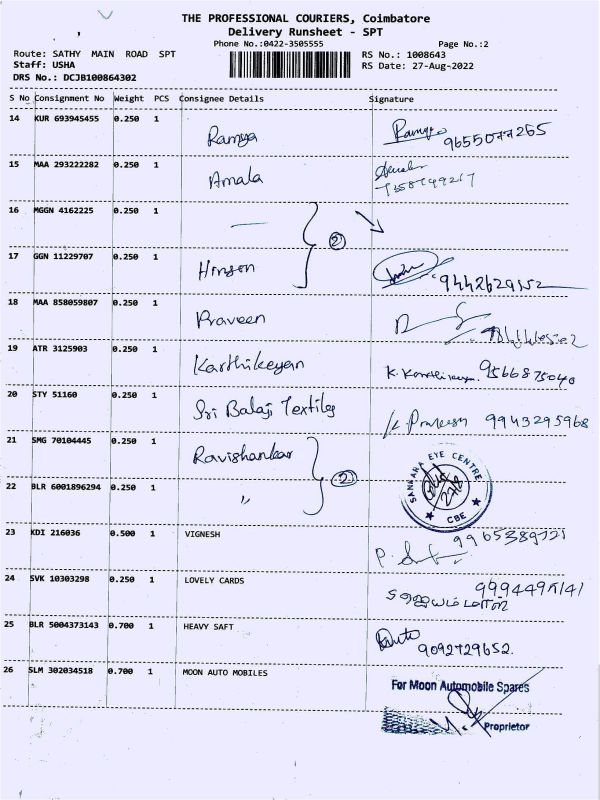 THE PROFESSIONAL COURIERS, Coimbatore
Delivery Runsheet - SPT
Phone No.:0422-3505555 Page No.:2
Route: SATHY MAIN ROAD SPT RS No.: 1008643
Staff: USHA RS Date: 27-Aug-2022
DRS No.: DCJB100864302
S No Consignment No Weight PCS Consignee Details Signature
14 KUR 693945455 0.250 1 Ramya Ramya 9655077265
15 MAA 293222282 0.250 1 Amala
16 MGGN 4162225 0.250 1 —
②
17 GGN 11229707 0.250 1 Hinson 9442629152
18 MAA 858059807 0.250 1 Praveen
19 ATR 3125903 0.250 1 Karthikeyan K. Karthikeyan. 9566875040
20 STY 51160 0.250 1 Sri Balaji Textiles 9943295968
21 SMG 70104445 0.250 1 Ravishankar
②
SANKARA EYE CENTRE
27/8
★ CBE ★
22 BLR 6001896294 0.250 1 "
23 KDI 216036 0.500 1 VIGNESH
24 SVK 10303298 0.250 1 LOVELY CARDS
25 BLR 5004373143 0.700 1 HEAVY SAFT 9092729652.
26 SLM 302034518 0.700 1 MOON AUTO MOBILES
For Moon Automobile Spares
Proprietor